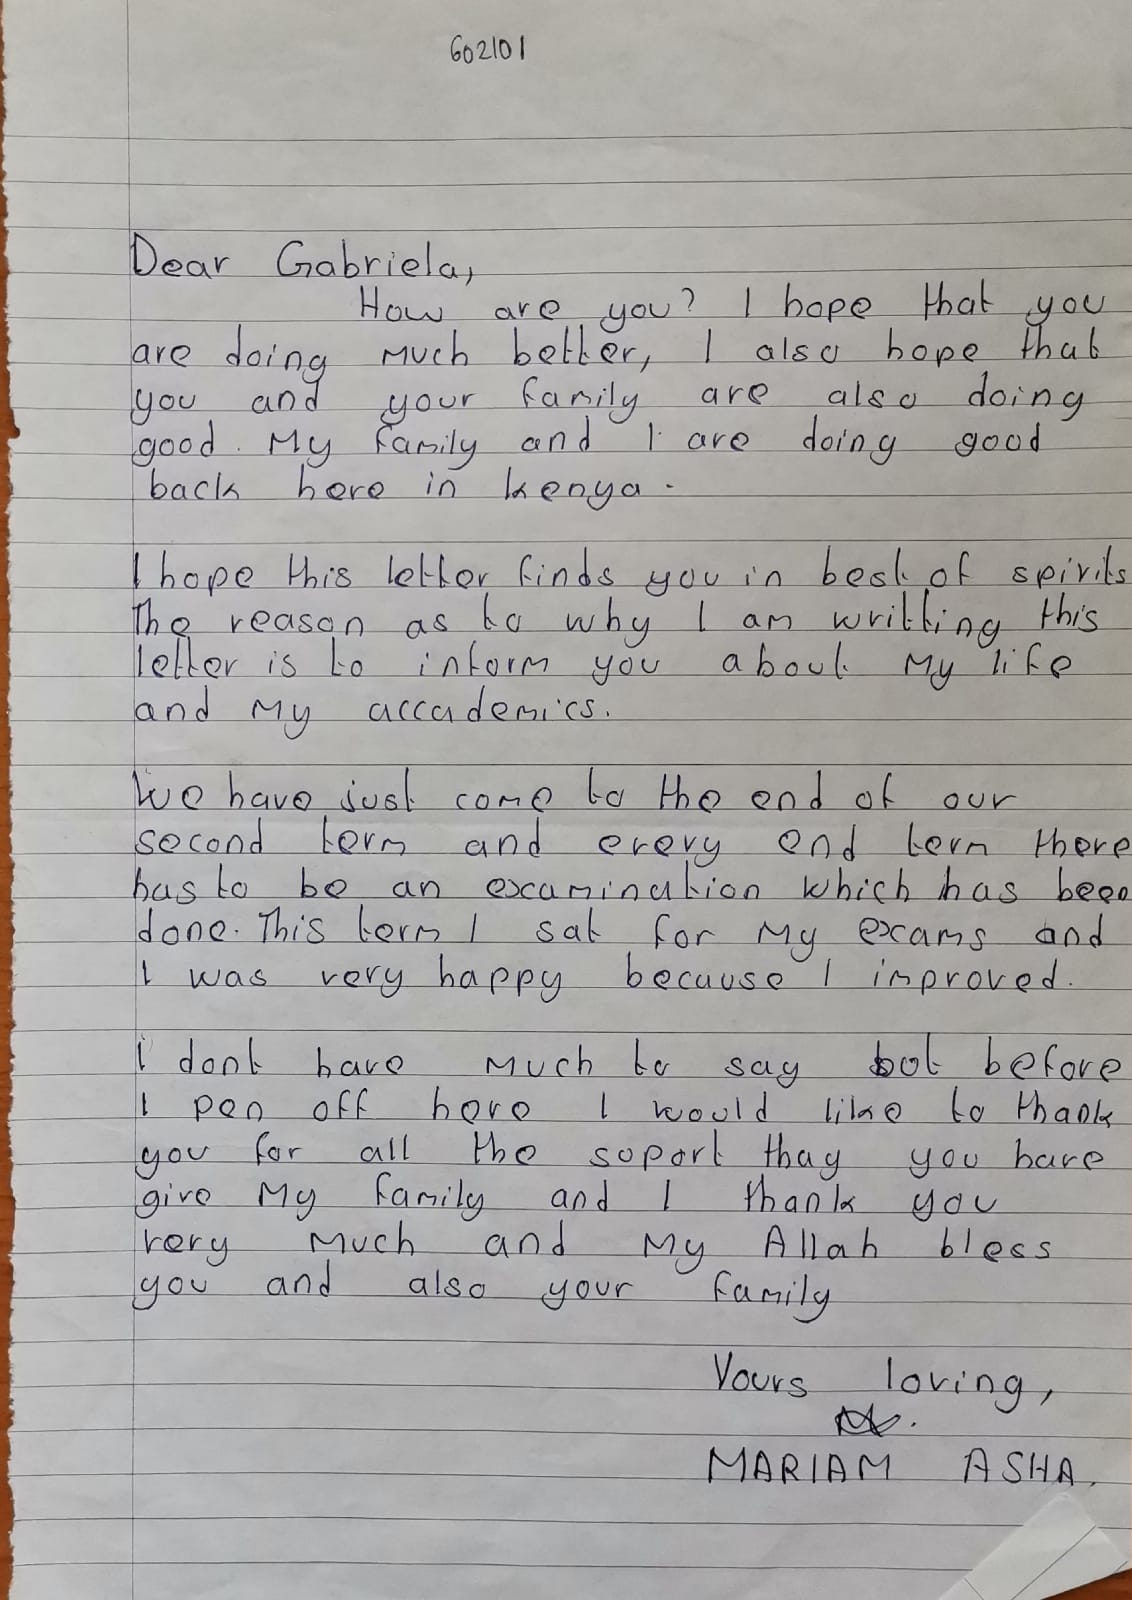 602101
Dear Gabriela,
How are you? I hope that you
are doing much better, I also hope that
you and your family are also doing
good. My family and I are doing good
back here in kenya.
I hope this letter finds you in best of spirits
The reason as to why I am writting this
letter is to inform you about my life
and my accademics.
We have just come to the end of our
second term and every end term there
has to be an examination which has been
done. This term I sat for my exams and
I was very happy because I improved.
I dont have much to say but before
I pen off here I would like to thank
you for all the soport thay you have
give my family and I thank you
very much and my Allah bless
you and also your family
Yours loving,
MARIAM ASHA.